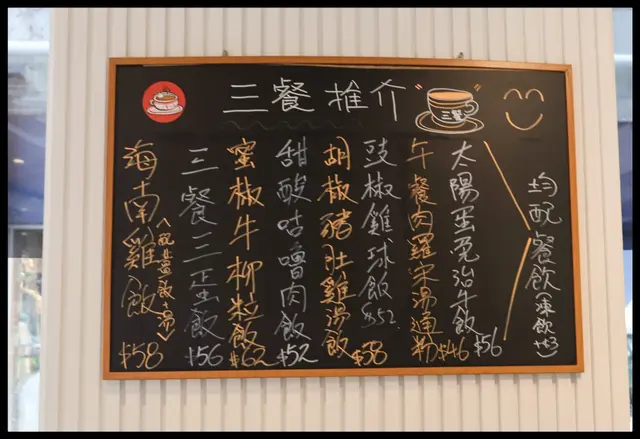 三餐推介
三餐
均配餐飲(凍飲+3)
太陽蛋免治牛飯$56
午餐肉羅宋湯通粉$46
豉椒雞球飯$52
胡椒豬肚雞湯飯$58
甜酸咕嚕肉飯$52
蜜椒牛柳粒飯$62
三餐三正虫飯$56
海南雞飯<配薑飯+湯>$58